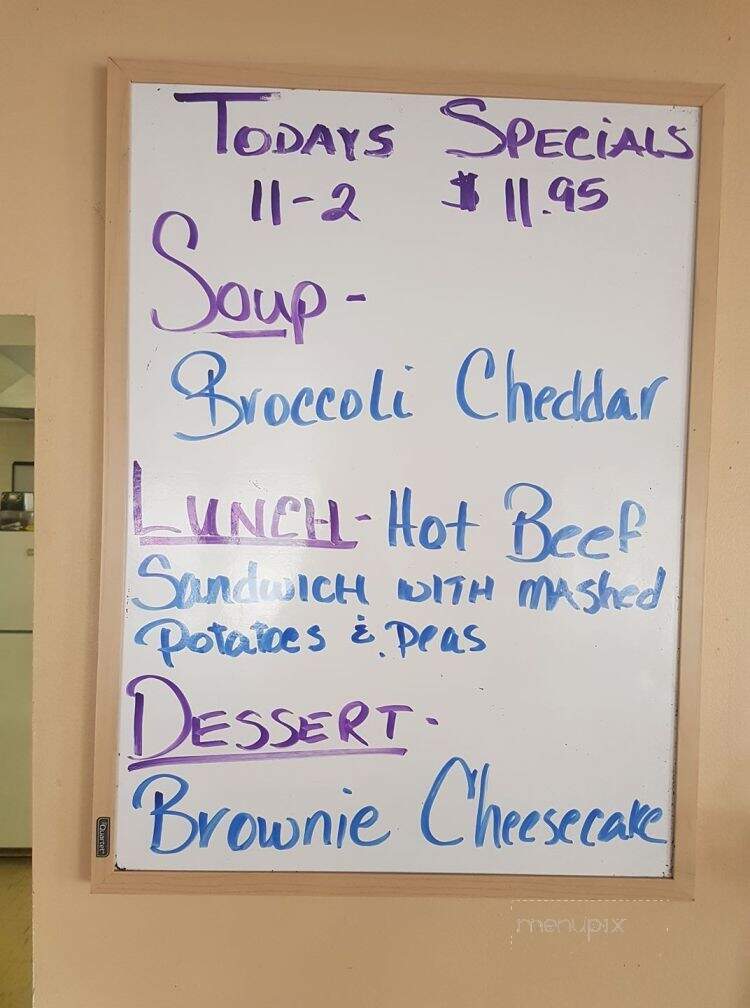 Todays Specials
11-2 $11.95
Soup-
Broccoli Cheddar
Lunch- Hot Beef
Sandwich with mashed
potatoes & peas
Dessert-
Brownie Cheesecake
Quartet
menupix